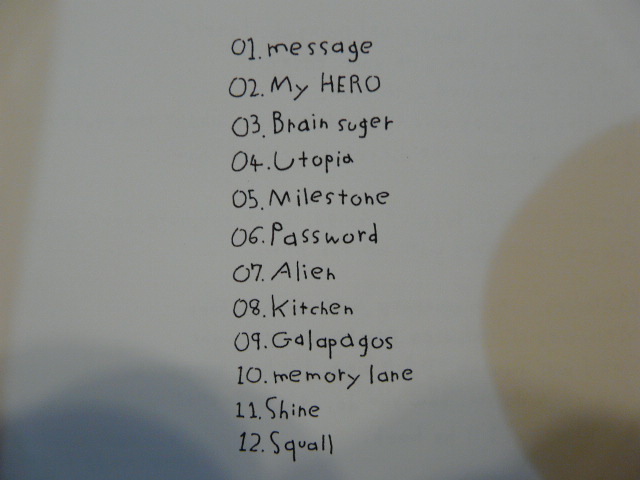 01. message
02. My HERO
03. Brain suger
04. Utopia
05. Milestone
06. Password
07. Alien
08. Kitchen
09. Galapagos
10. memory lane
11. Shine
12. Squall